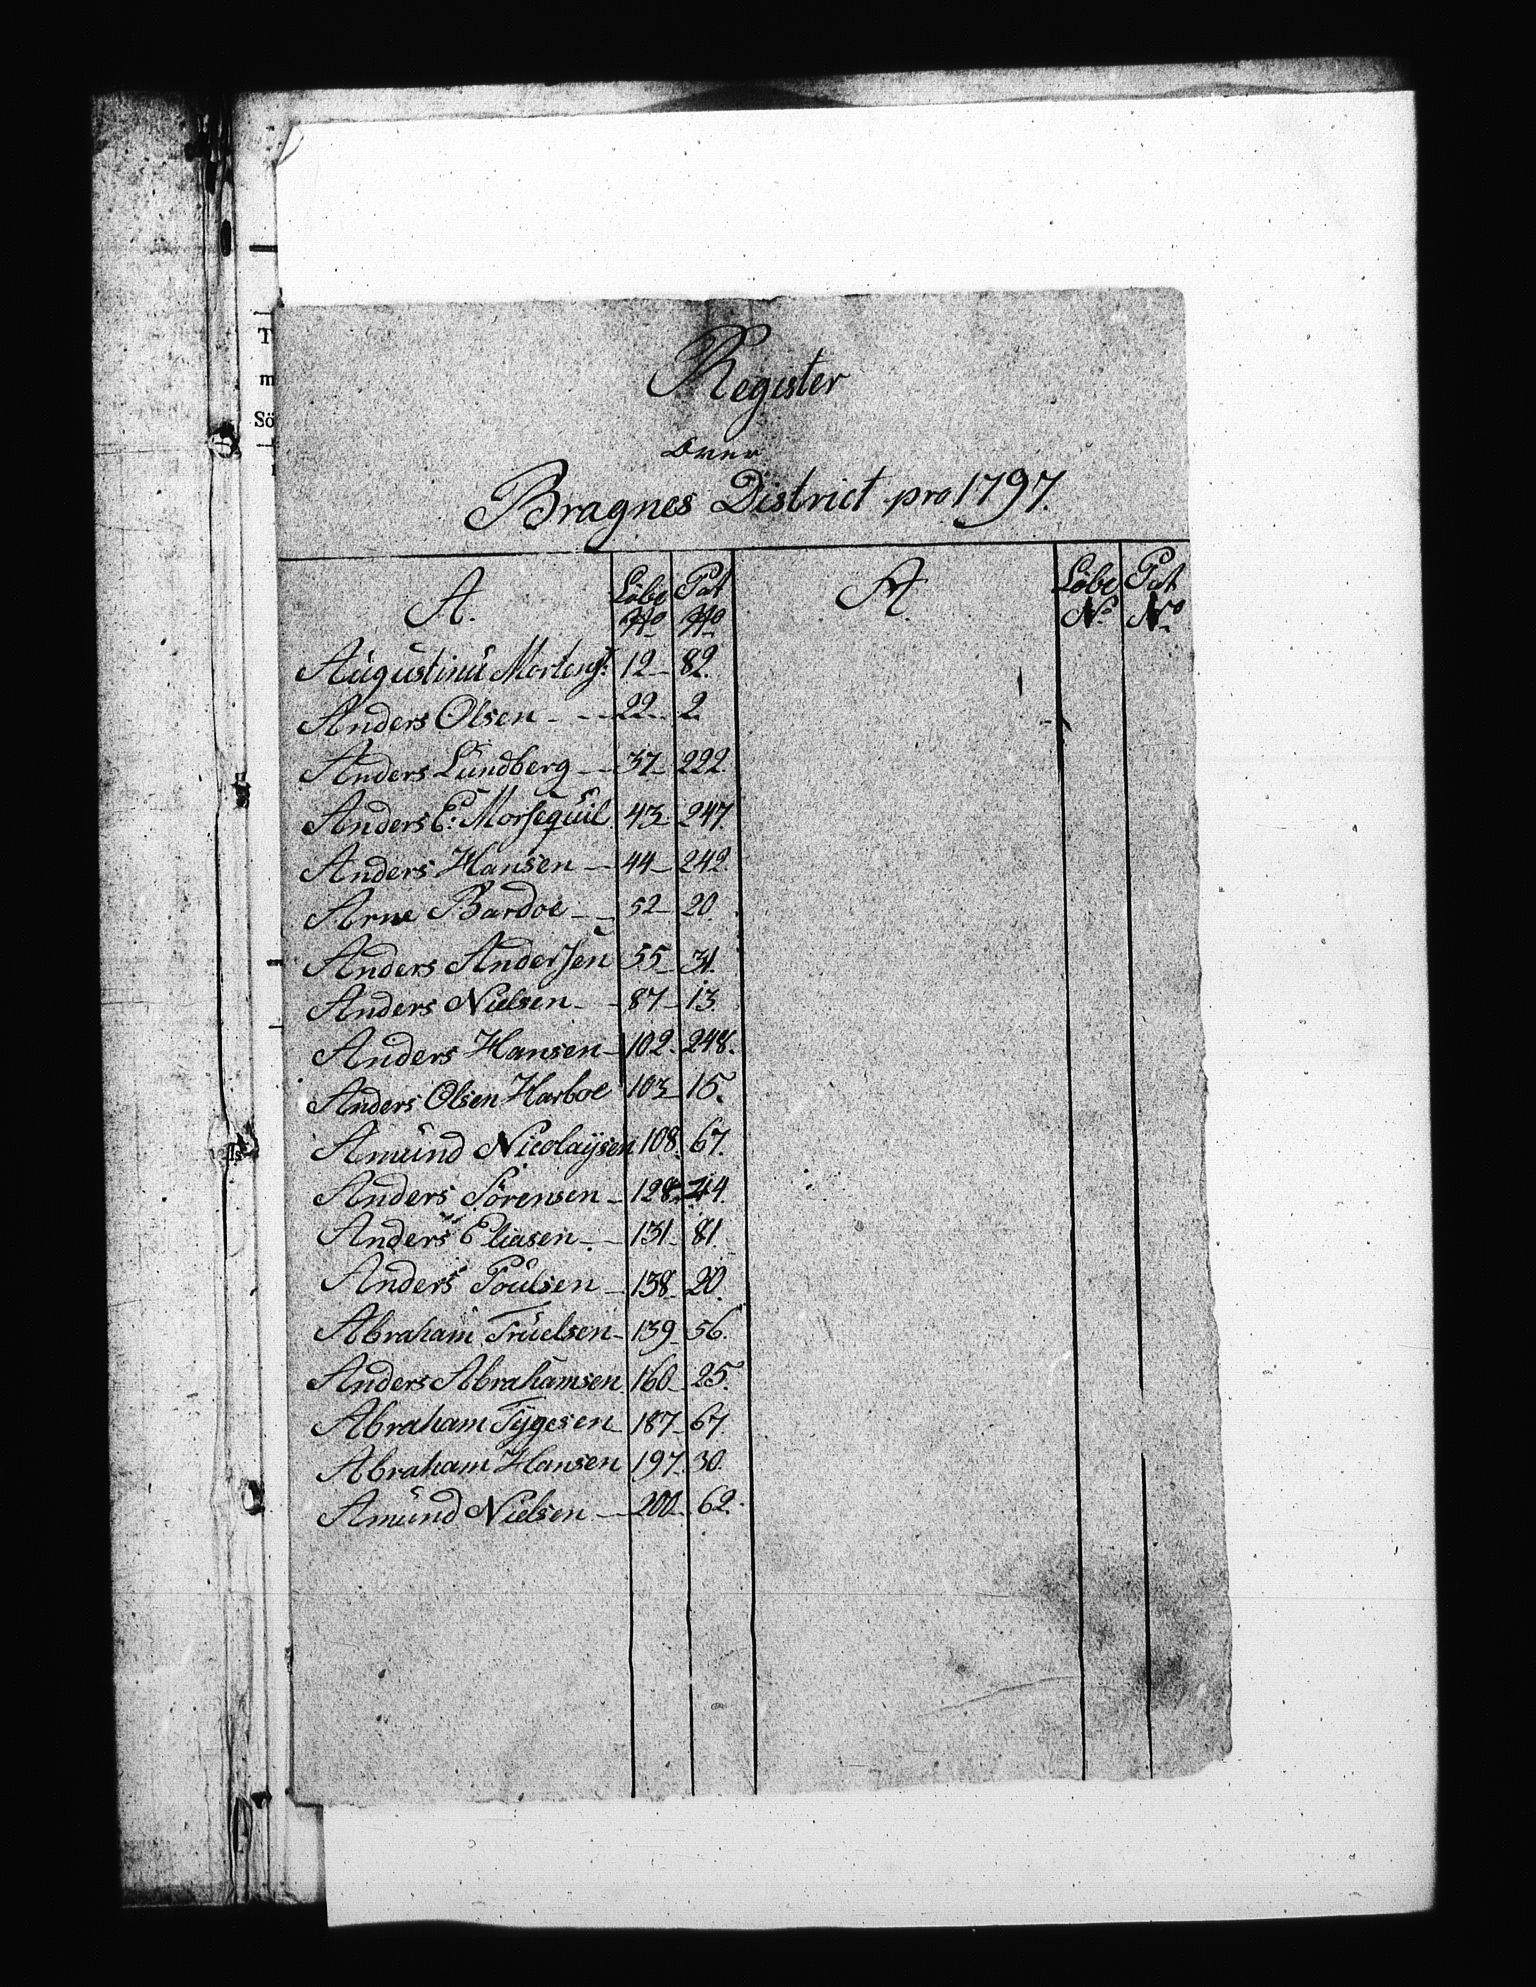 Register
over
Bragnes District pro 1797.
A. Löbe No Pat No A. Löbe No Pat No
Augustinu Mortens: 12 82.
Anders Olsen 22 2.
Anders Lundberg 37 222.
Anders E: 43 247.
Anders Hansen 44 242.
Arne Bardoe 52 20
Anders Andersen 55 31.
Anders Nielsen 87 13.
Anders Hansen 102. 248.
Anders Olsen Harboe 103 15.
Amund Nicolaysen 108. 67.
Anders Sörensen 128 44.
Anders Eliasen 131 81.
Anders Poulsen 138 20.
Abraham Truelsen 139 56.
Anders Abrahamsen 160 25.
Abraham Tygesen 187 67.
Abraham Hansen 197. 30.
Amund Nielsen 200 62.